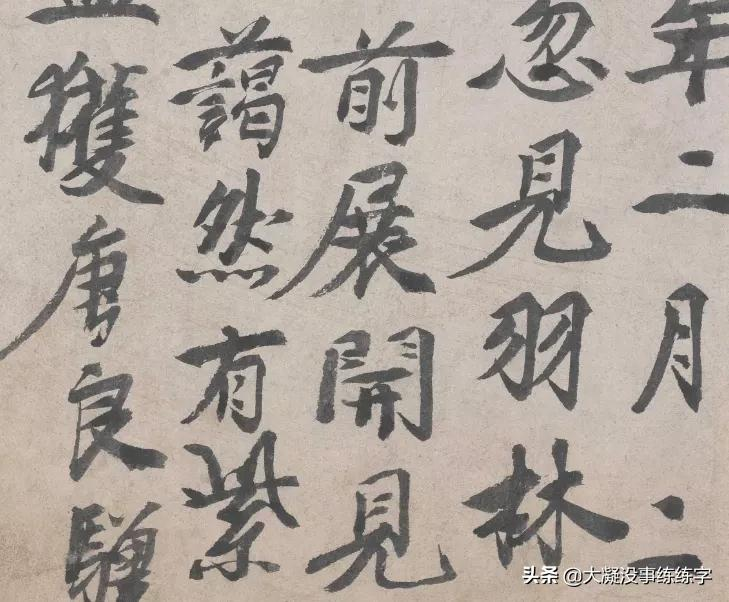 年二月二
忽見羽林
前展開見
藹然有紫
獲唐良驥
头条 @大凝没事练练字